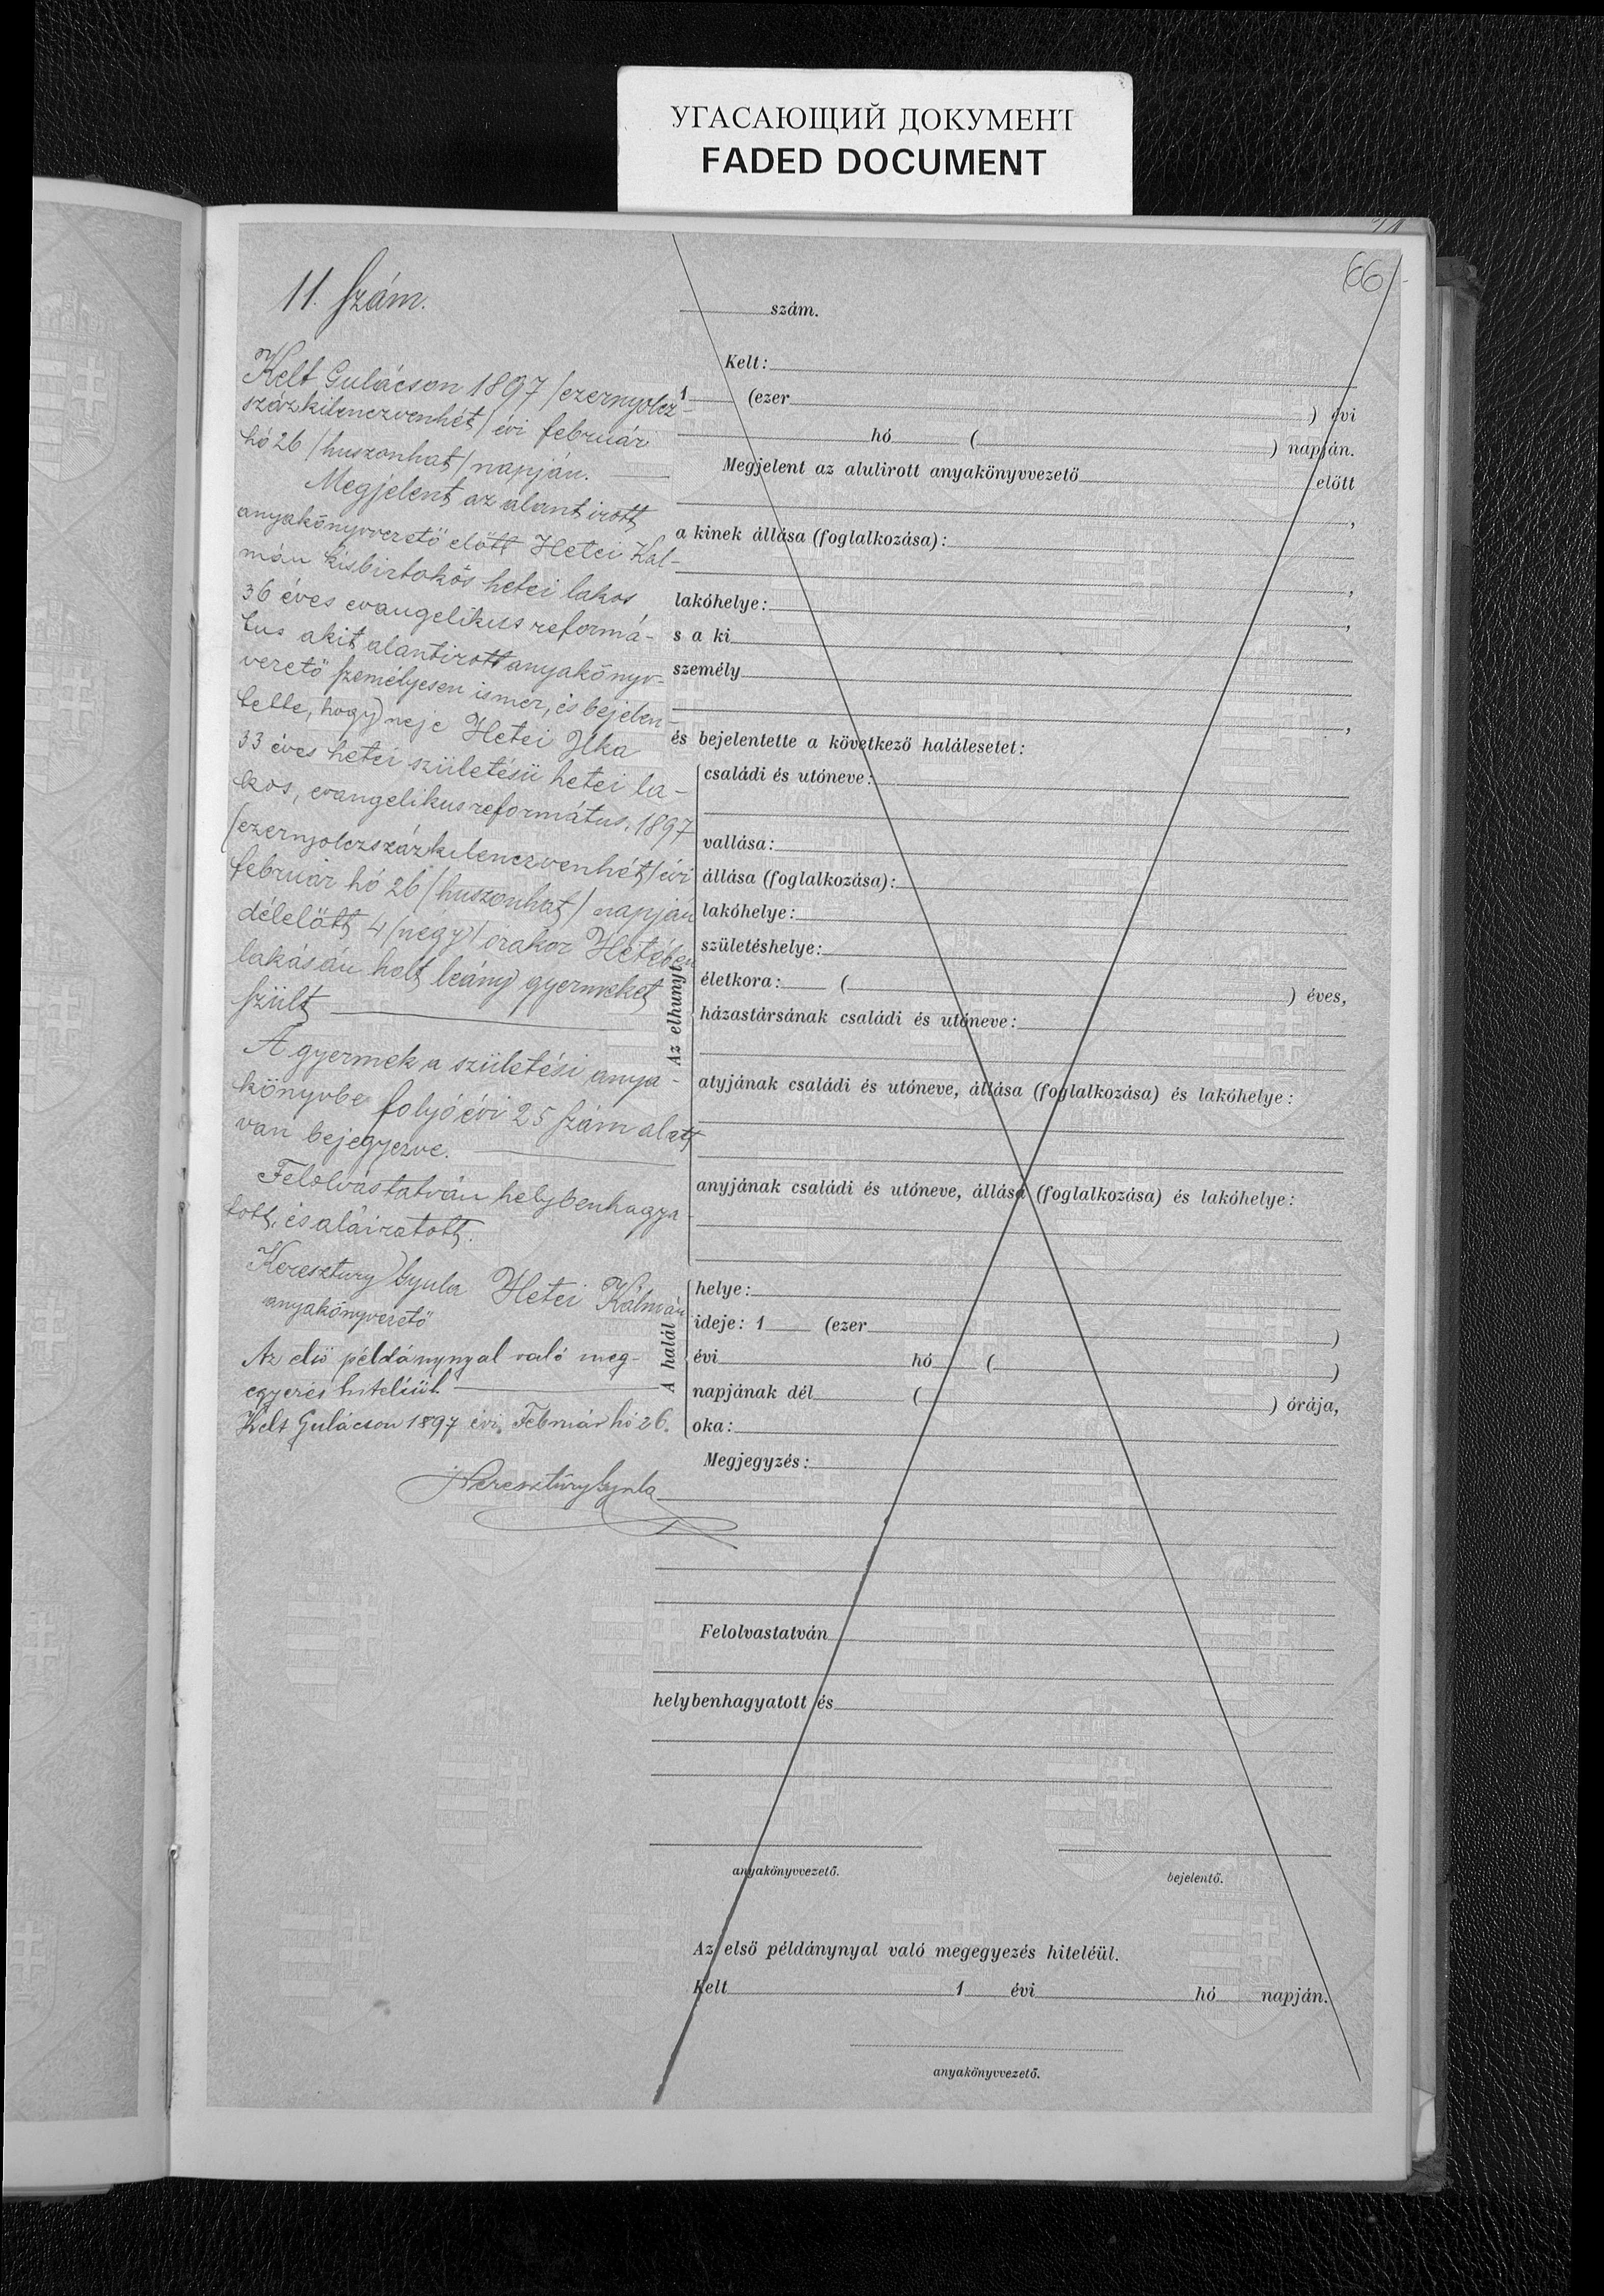 УГАСАЮЩИЙ ДОКУМЕНТ
FADED DOCUMENT
66
11. szám.
Kelt Gulácson 1897 /ezernyolcz-
százkilenczvenhét/ évi február
hó 26 /huszonhat/ napján.
Megjelent az alant irott
anyakönyvvezető előtt Hetei Kál-
mán kisbirtokos hetei lakos
36 éves evangelikus reformá-
tus akit alantirott anyakönyv-
vezető személyesen ismer, és bejelen-
tette, hogy neje Hetei Ilka
33 éves hetei születésü hetei la-
kos, evangelikus református, 1897
/ezernyolczszázkilenczvenhét/ évi
február hó 26 /huszonhat/ napján
délelőtt 4 /négy/ órakor Hetében
lakásán holt leány gyermeket
szült
A gyermek a születési anya-
könyvbe folyó évi 25 szám alatt
van bejegyezve.
Felolvastatván helybenhagya-
tott, és aláiratott.
Keresztury Gyula Hetei Kálmán
anyakönyvvezető
Az első példánynyal való meg-
egyezés hiteléül
Kelt Gulácson 1897 évi Február hó 26.
Keresztury Gyula
szám.
Kelt:
1 (ezer ) évi
hó ( ) napján.
Megjelent az alulirott anyakönyvvezető előtt
,
a kinek állása (foglalkozása):
,
lakóhelye:
,
s a ki
személy
,
és bejelentette a következő halálesetet:
Az elhunyt
családi és utóneve:
vallása:
állása (foglalkozása):
lakóhelye:
születéshelye:
életkora: ( ) éves,
házastársának családi és utóneve:
atyjának családi és utóneve, állása (foglalkozása) és lakóhelye:
anyjának családi és utóneve, állása (foglalkozása) és lakóhelye:
A halál
helye:
ideje: 1 (ezer )
évi hó ( )
napjának dél ( ) órája,
oka:
Megjegyzés:
Felolvastatván
helybenhagyatott és
anyakönyvvezető.
bejelentő.
Az első példánynyal való megegyezés hiteléül.
Kelt 1 évi hó napján.
anyakönyvvezető.